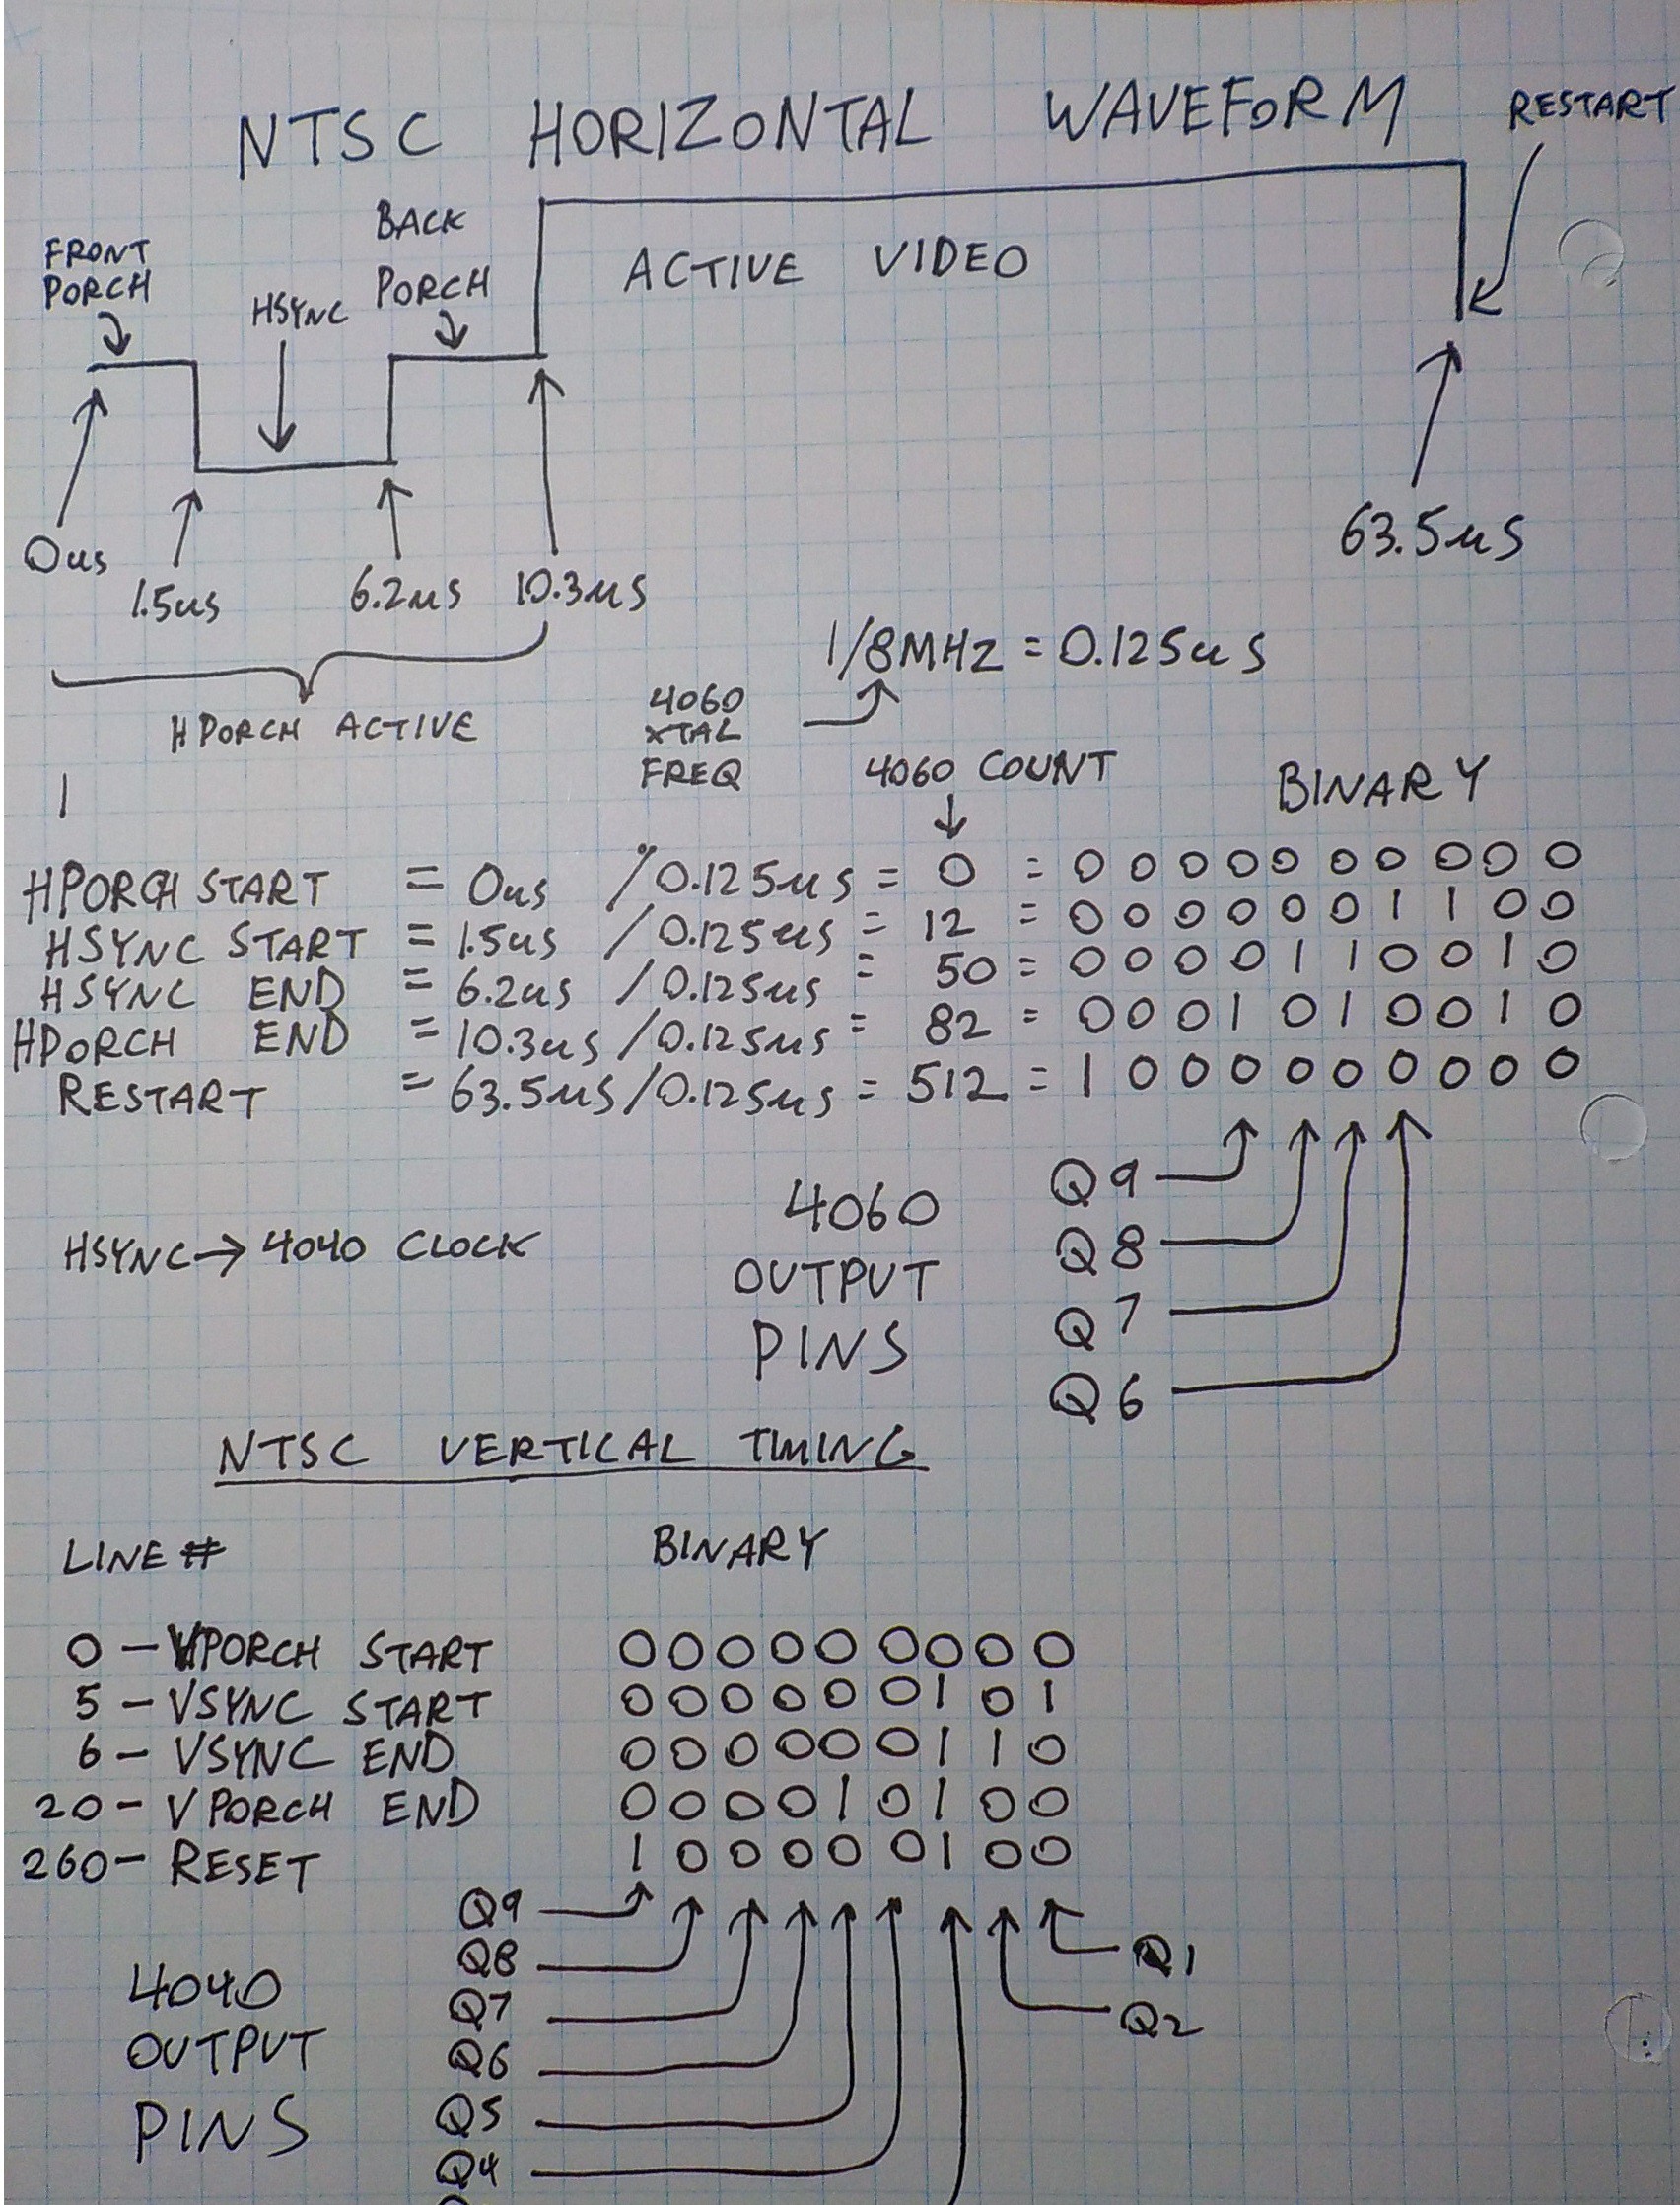 NTSC HORIZONTAL WAVEFORM
RESTART
FRONT
PORCH
HSYNC
BACK
PORCH
ACTIVE VIDEO
0us
1.5us
6.2us
10.3us
63.5us
HPORCH ACTIVE
1/8MHZ = 0.125us
4060
XTAL
FREQ
4060 COUNT
BINARY
HPORCH START = 0us /0.125us = 0 = 0 0 0 0 0 0 0 0 0 0
HSYNC START = 1.5us /0.125us = 12 = 0 0 0 0 0 0 1 1 0 0
HSYNC END = 6.2us /0.125us = 50 = 0 0 0 0 1 1 0 0 1 0
HPORCH END = 10.3us /0.125us = 82 = 0 0 0 1 0 1 0 0 1 0
RESTART = 63.5us/0.125us = 512 = 1 0 0 0 0 0 0 0 0 0
HSYNC→ 4040 CLOCK
4060
OUTPUT
PINS
Q9
Q8
Q7
Q6
NTSC VERTICAL TIMING
LINE # BINARY
0 - VPORCH START 0 0 0 0 0 0 0 0 0
5 - VSYNC START 0 0 0 0 0 0 1 0 1
6 - VSYNC END 0 0 0 0 0 0 1 1 0
20 - VPORCH END 0 0 0 0 1 0 1 0 0
260 - RESET 1 0 0 0 0 0 1 0 0
4040
OUTPUT
PINS
Q9
Q8
Q7
Q6
Q5
Q4
Q1
Q2